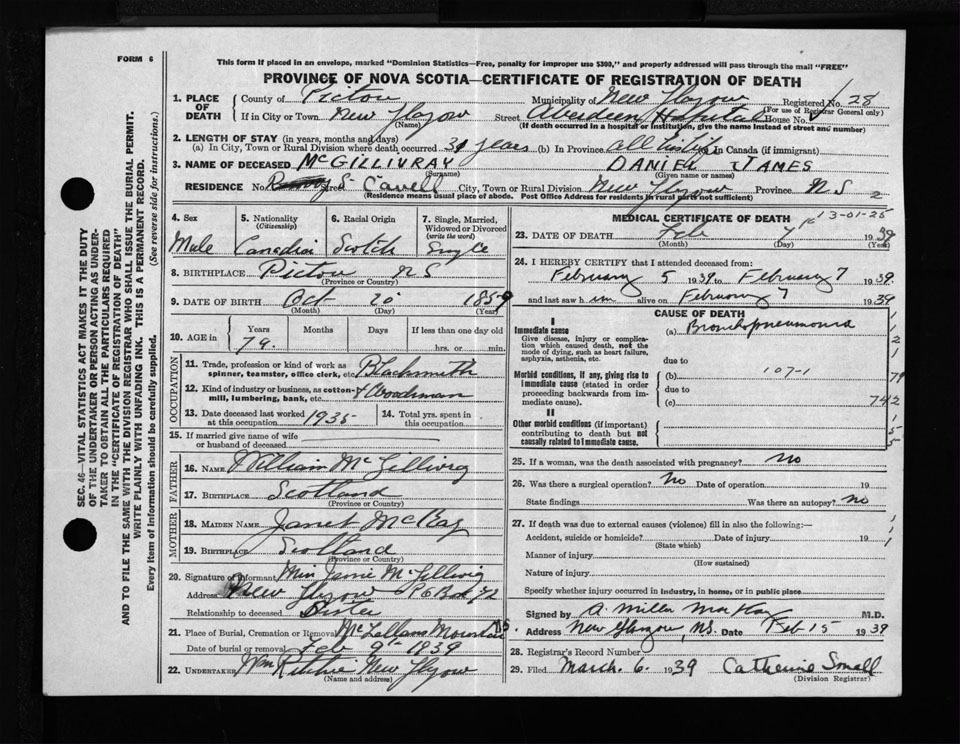 FORM 6
This form if placed in an envelope, marked "Dominion Statistics—Free, penalty for improper use $300," and properly addressed will pass through the mail "FREE"
PROVINCE OF NOVA SCOTIA—CERTIFICATE OF REGISTRATION OF DEATH
SEC. 46—VITAL STATISTICS ACT MAKES IT THE DUTY
OF THE UNDERTAKER OR PERSON ACTING AS UNDER-
TAKER TO OBTAIN ALL THE PARTICULARS REQUIRED
IN THE "CERTIFICATE OF REGISTRATION OF DEATH"
AND TO FILE THE SAME WITH THE DIVISION REGISTRAR WHO SHALL ISSUE THE BURIAL PERMIT.
WRITE PLAINLY WITH UNFADING INK. THIS IS A PERMANENT RECORD.
Every item of Information should be carefully supplied. (See reverse side for instructions.)
1. PLACE OF DEATH
County of Pictou Municipality of New Glasgow Registered No. 28
(For use of Registrar General only)
If in City or Town New Glasgow Street Aberdeen Hospital House No.
(Name) (If death occurred in a hospital or institution, give the name instead of street and number)
2. LENGTH OF STAY (in years, months and days)
(a) In City, Town or Rural Division where death occurred years (b) In Province all his life (c) In Canada (if immigrant)
3. NAME OF DECEASED McGILLIVRAY DANIEL JAMES
(Surname) (Given name or names)
RESIDENCE No. Cavell City, Town or Rural Division New Glasgow Province N S 2
(Residence means usual place of abode. Post Office Address for residents in rural parts not sufficient)
4. Sex
Male
5. Nationality
(Citizenship)
Canadian
6. Racial Origin
Scotch
7. Single, Married,
Widowed or Divorced
(write the word)
Single
8. BIRTHPLACE Pictou N S
(Province or Country)
9. DATE OF BIRTH Oct 20 1859
(Month) (Day) (Year)
10. AGE in
Years Months Days If less than one day old
79. hrs. or min.
OCCUPATION
11. Trade, profession or kind of work as Blacksmith
spinner, teamster, office clerk, etc.
12. Kind of industry or business, as cotton- & Woodsman
mill, lumbering, bank, etc.
13. Date deceased last worked 1935
at this occupation
14. Total yrs. spent in
this occupation
15. If married give name of wife
or husband of deceased
FATHER
16. NAME William McGillivray
17. BIRTHPLACE Scotland
(Province or Country)
MOTHER
18. MAIDEN NAME Janet McKay
19. BIRTHPLACE Scotland
(Province or Country)
20. Signature of Informant Miss Jamie McGillivray
Address New Glasgow P O Box 72
Relationship to deceased Sister
21. Place of Burial, Cremation or Removal McLellans Mountain N.S.
Date of burial or removal Feb 9th 1939
22. UNDERTAKER Wm Ritchie New Glasgow
(Name and address)
MEDICAL CERTIFICATE OF DEATH
13-01-25
23. DATE OF DEATH Feb 7 1939
(Month) (Day) (Year)
24. I HEREBY CERTIFY that I attended deceased from:
February 5 1939 to February 7 1939.
and last saw him alive on February 7 1939
CAUSE OF DEATH
I
Immediate cause (a) Bronchopneumonia
Give disease, injury or complica-
tion which caused death, not the
mode of dying, such as heart failure,
asphyxia, asthenia, etc.
due to
Morbid conditions, if any, giving rise to (b) 107-1
immediate cause (stated in order due to
proceeding backwards from im- (c)
mediate cause).
II
Other morbid conditions (if important)
contributing to death but not
causally related to immediate cause.
25. If a woman, was the death associated with pregnancy? No
26. Was there a surgical operation? No Date of operation 19
State findings Was there an autopsy? No
27. If death was due to external causes (violence) fill in also the following:—
Accident, suicide or homicide? Date of injury 19
(State which)
Manner of injury
(How sustained)
Nature of injury
Specify whether injury occurred in industry, in home, or in public place
Signed by A. Miller MacKay M.D.
Address New Glasgow, N.S. Date Feb 15 1939
28. Registrar's Record Number
29. Filed March. 6. 1939 Catherine Small
(Division Registrar)